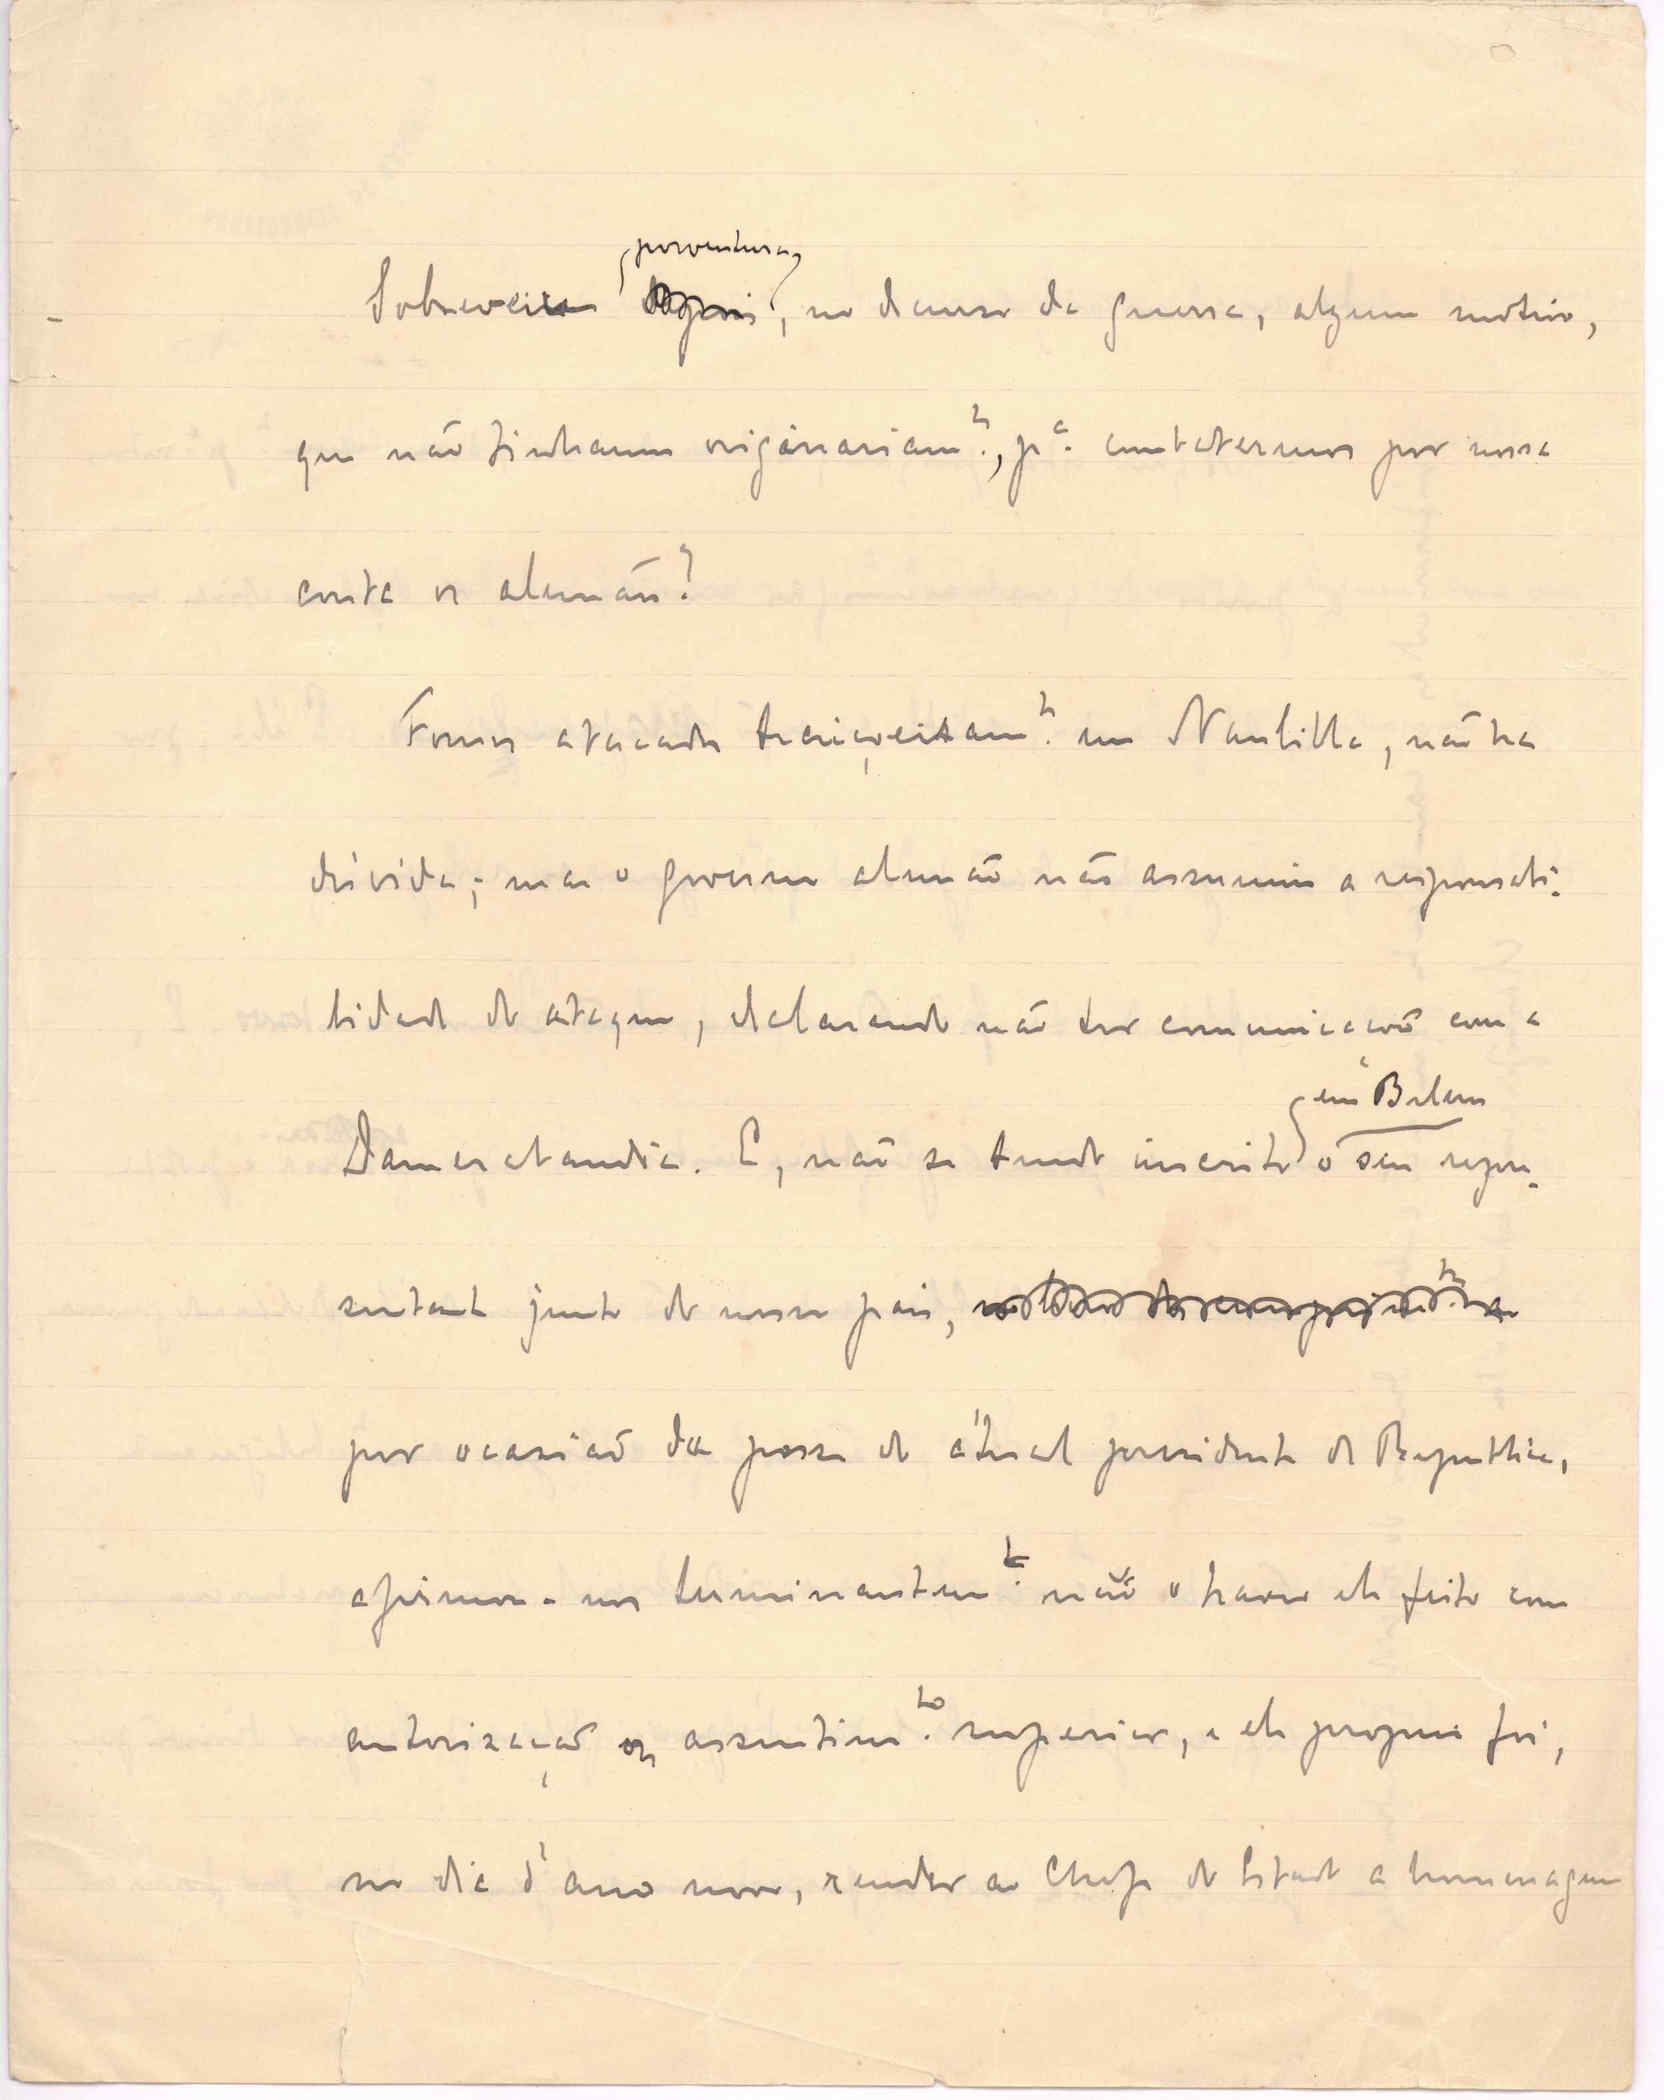 Sobreveiu porventura, no decurso da guerra, algum motivo,
que não tinhamos originariam.te, p.a combatermos por nossa
conta os alemães?
Fomos atacados traiçoeiram.te em Naulilla, não ha
dúvida; mas o governo alemão não assumiu a responsabi-
lidade do ataque, declarando não ter comunicação com a
Damaralandia. E, não se tendo inscrito em Belem o seu repre-
sentante junto do nosso pais,
por ocasião da posse do atual presidente da Republica,
afirmou-nos terminantem.te não o haver ele feito com
autorização ou assentim.to superior, e ele proprio foi,
no dia d'ano novo, render ao Chefe do Estado a homenagem